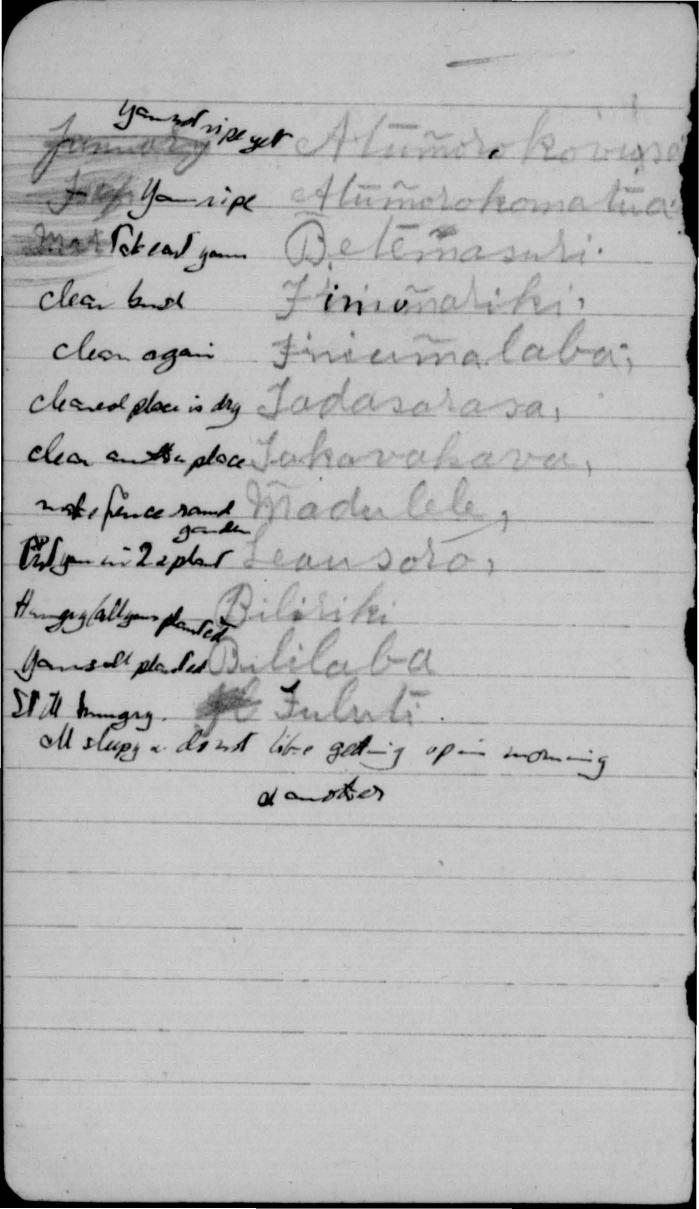 yam not ripe yet
January Atūm̃orokovusa
Feb Yam ripe Atūm̃orokomatūa.
Mar Take out yams Betem̃asuri.
clear bush Finiom̃ariki,
clear again Finium̃alaba,
cleared place is dry Tadasarasa,
clear another place Takavakava,
make fence round M̃adulele,
garden
Put yam in & plant Leausoro,
Hungry (all yams planted Biliriki
Yams all planted Bulilaba
Still hungry. Fuluti.
All sleepy & do not like getting up in morning
& another